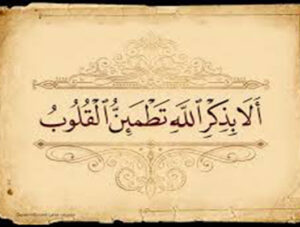 أَلَا بِذِكْرِ ٱللَّهِ تَطْمَئِنُّ ٱلْقُلُوبُ